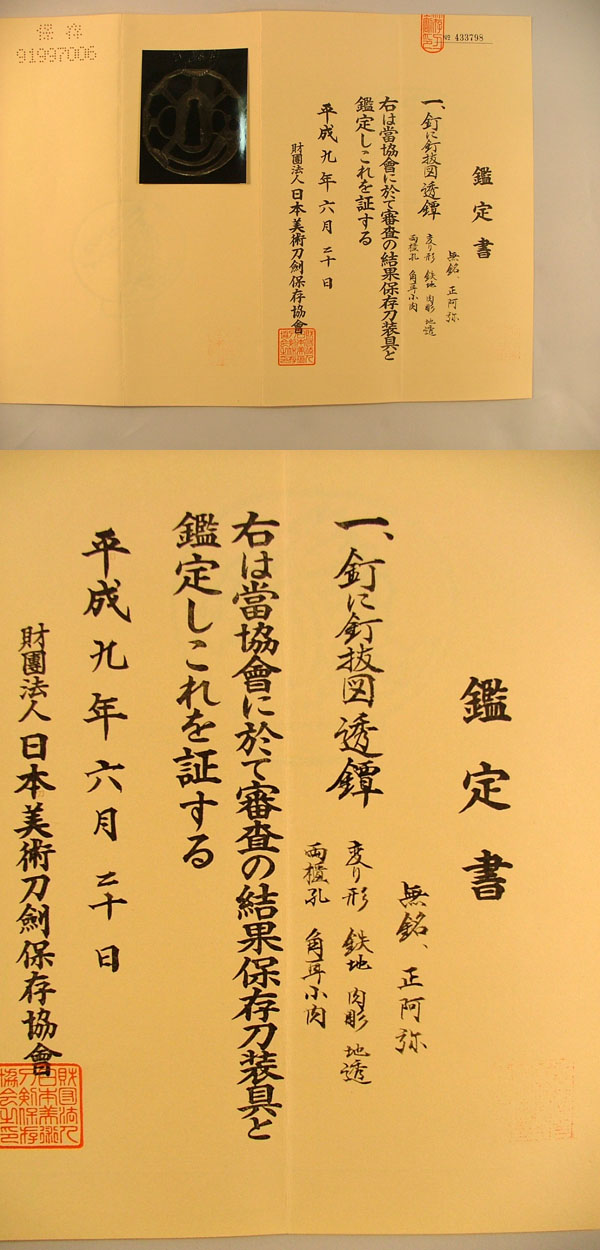 保存
91997006
№ 433798
鑑定書
無銘、正阿弥
一、釘に釘抜図透鐔
変り形 鉄地 肉彫 地透
両櫃孔 角耳小肉
右は當協會に於て審査の結果保存刀装具と
鑑定しこれを証する
平成九年六月二十日
財團法人日本美術刀劍保存協會
鑑定書
無銘、正阿弥
一、釘に釘抜図透鐔
変り形 鉄地 肉彫 地透
両櫃孔 角耳小肉
右は當協會に於て審査の結果保存刀装具と
鑑定しこれを証する
平成九年六月二十日
財團法人日本美術刀劍保存協會
財団法人
日本美術
刀剣保存
協会之印